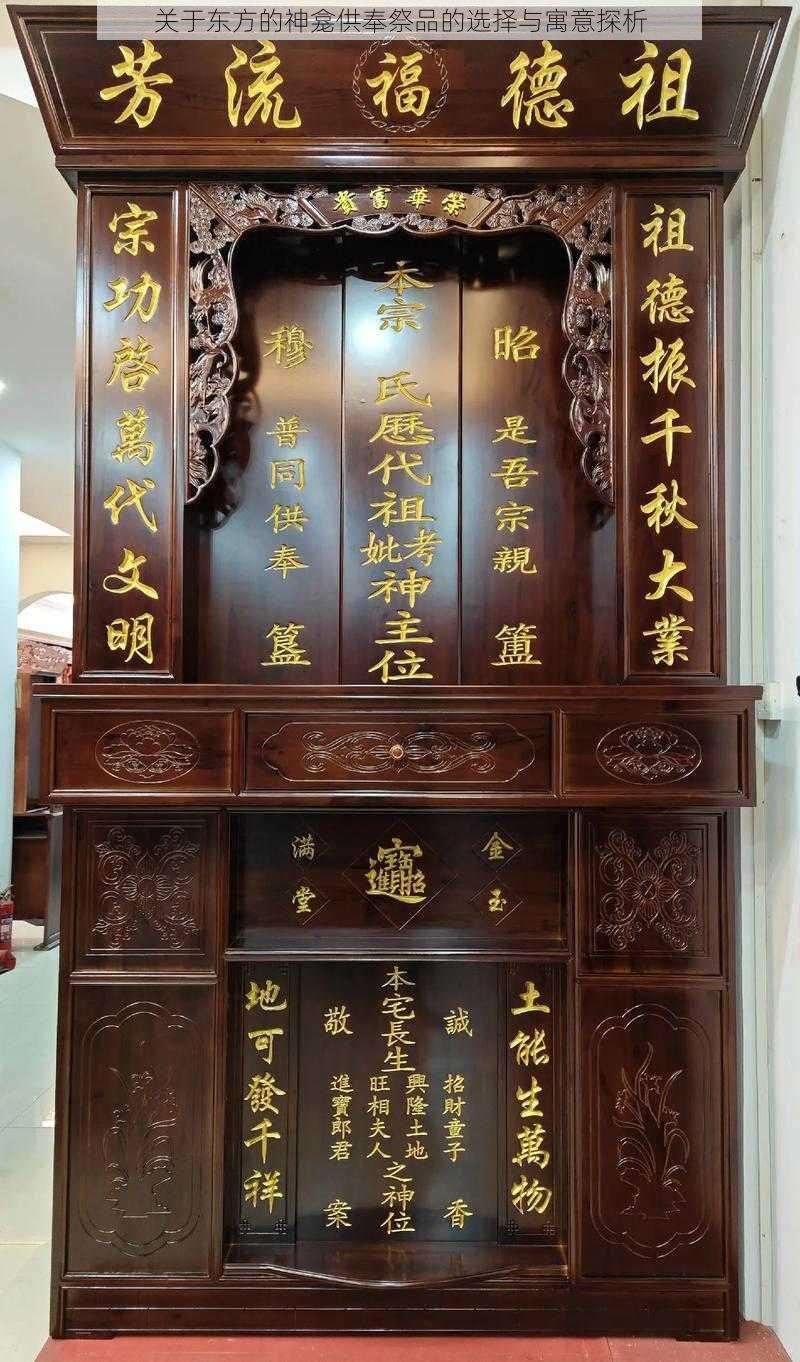 关于东方的神龛供奉祭品的选择与寓意探析
祖德福流芳
榮華富貴
祖德振千秋大業
宗功啓萬代文明
昭是吾宗親簠
本宗 氏歷代祖考妣神主位
穆普同供奉簋
金玉
招財進寶
满堂
土能生萬物
地可發千祥
誠香
招財童子
本宅長生
興隆土地
旺相夫人
之神位
進寶郎君
敬案